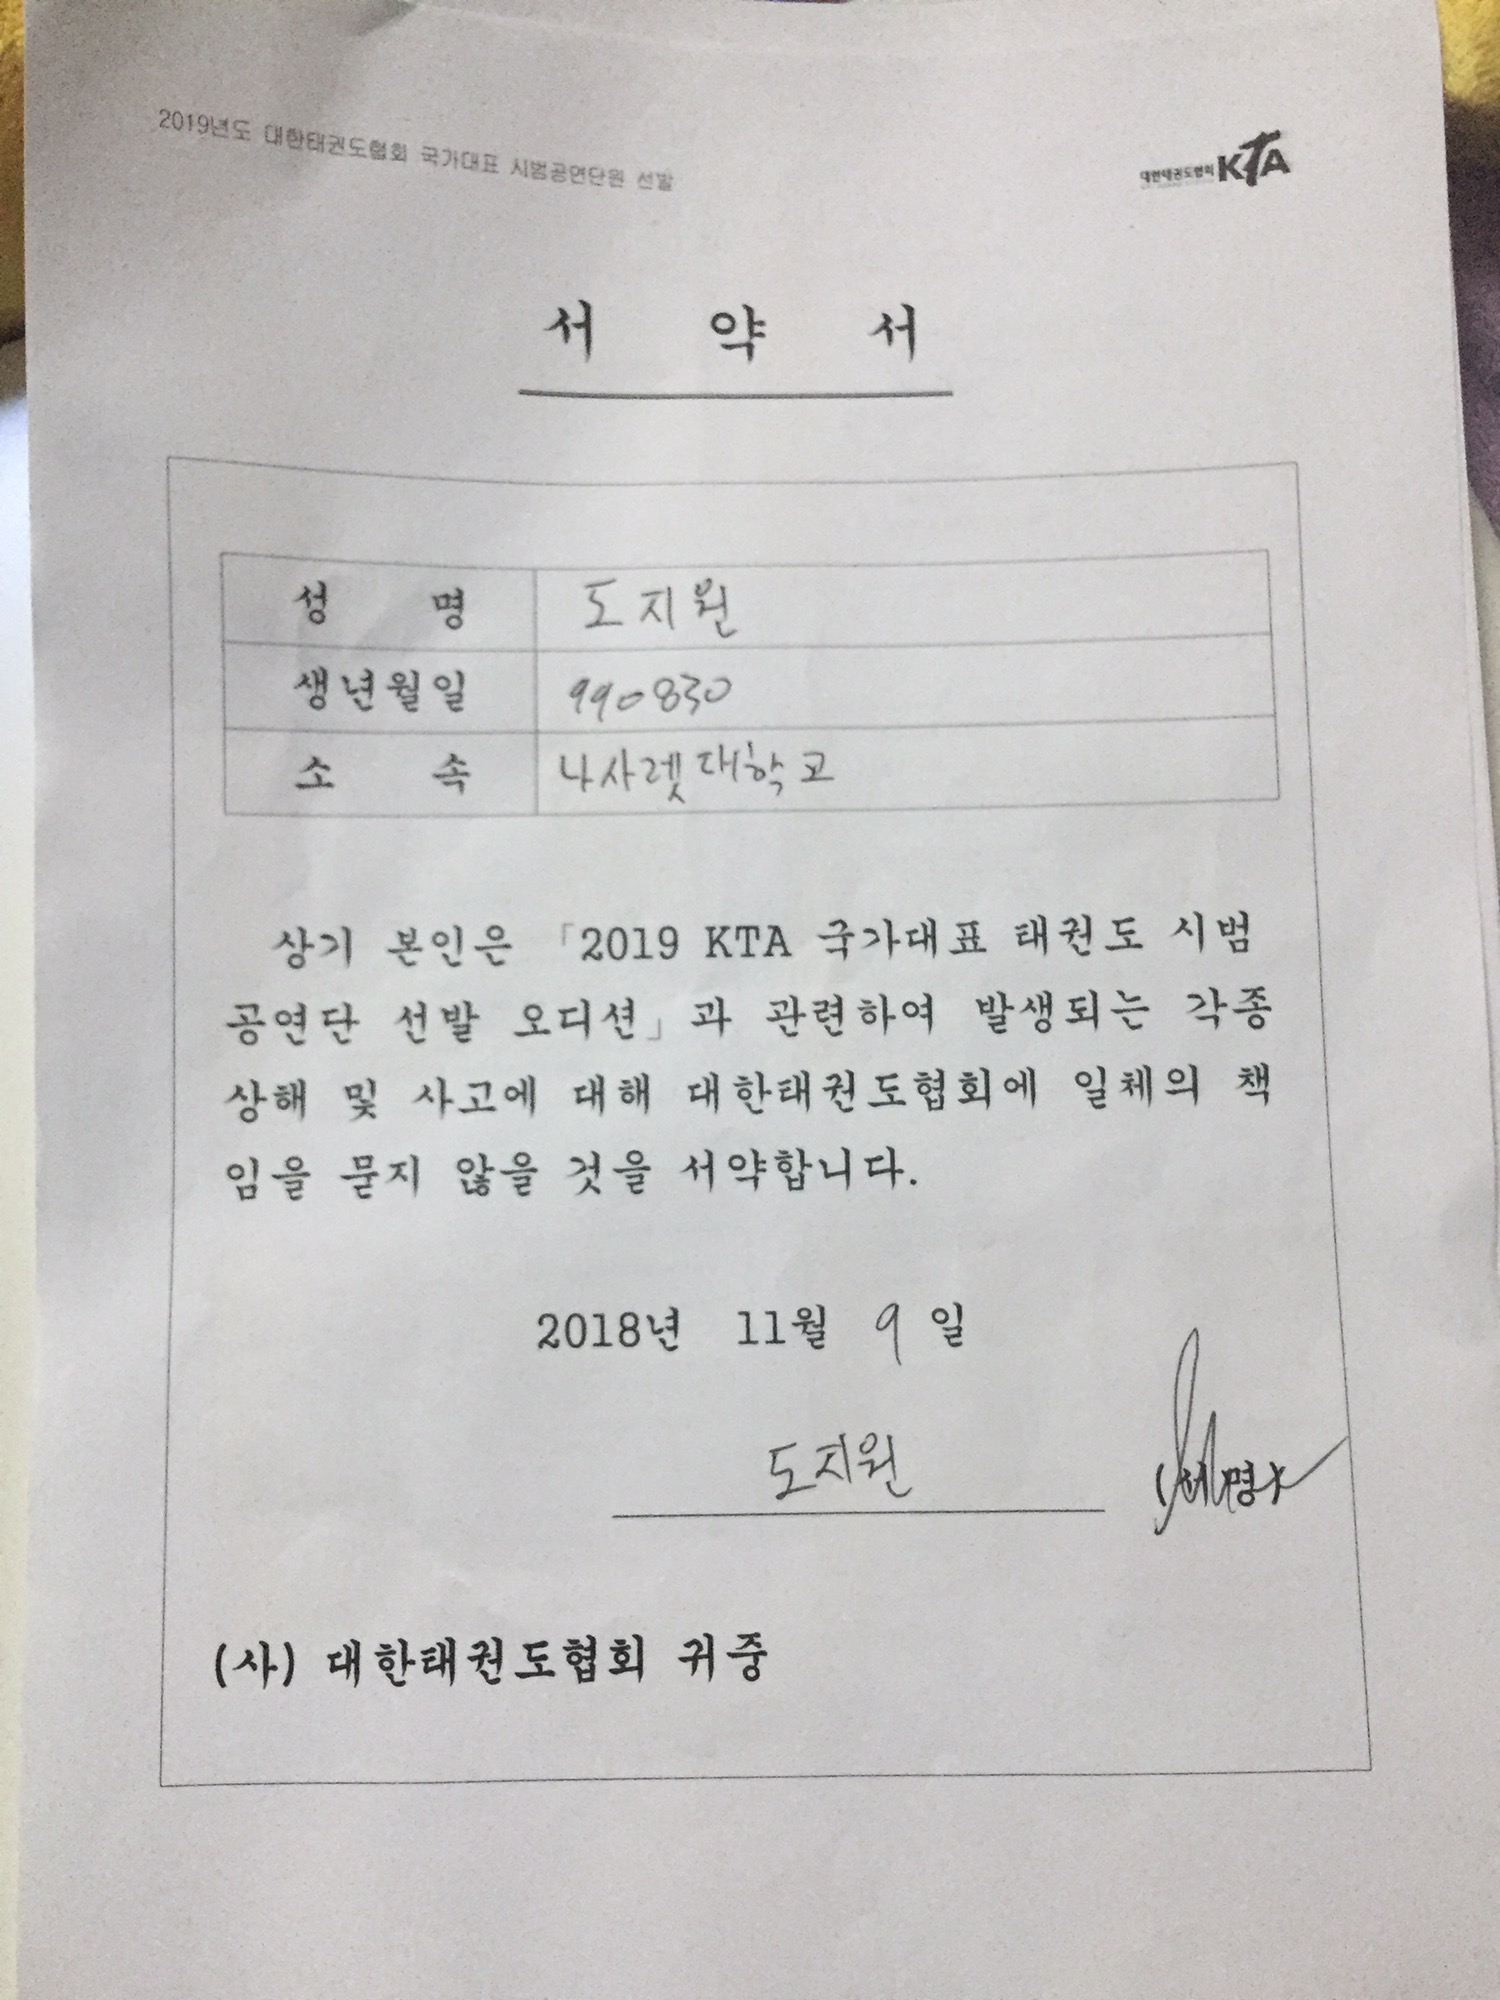 2019년도 대한태권도협회 국가대표 시범공연단원 선발
대한태권도협회 KTA
서 약 서
성 명 도지원
생년월일 990830
소 속 나사렛대학교
상기 본인은 「2019 KTA 국가대표 태권도 시범
공연단 선발 오디션」과 관련하여 발생되는 각종
상해 및 사고에 대해 대한태권도협회에 일체의 책
임을 묻지 않을 것을 서약합니다.
2018년 11월 9일
도지원 (서명)
(사) 대한태권도협회 귀중